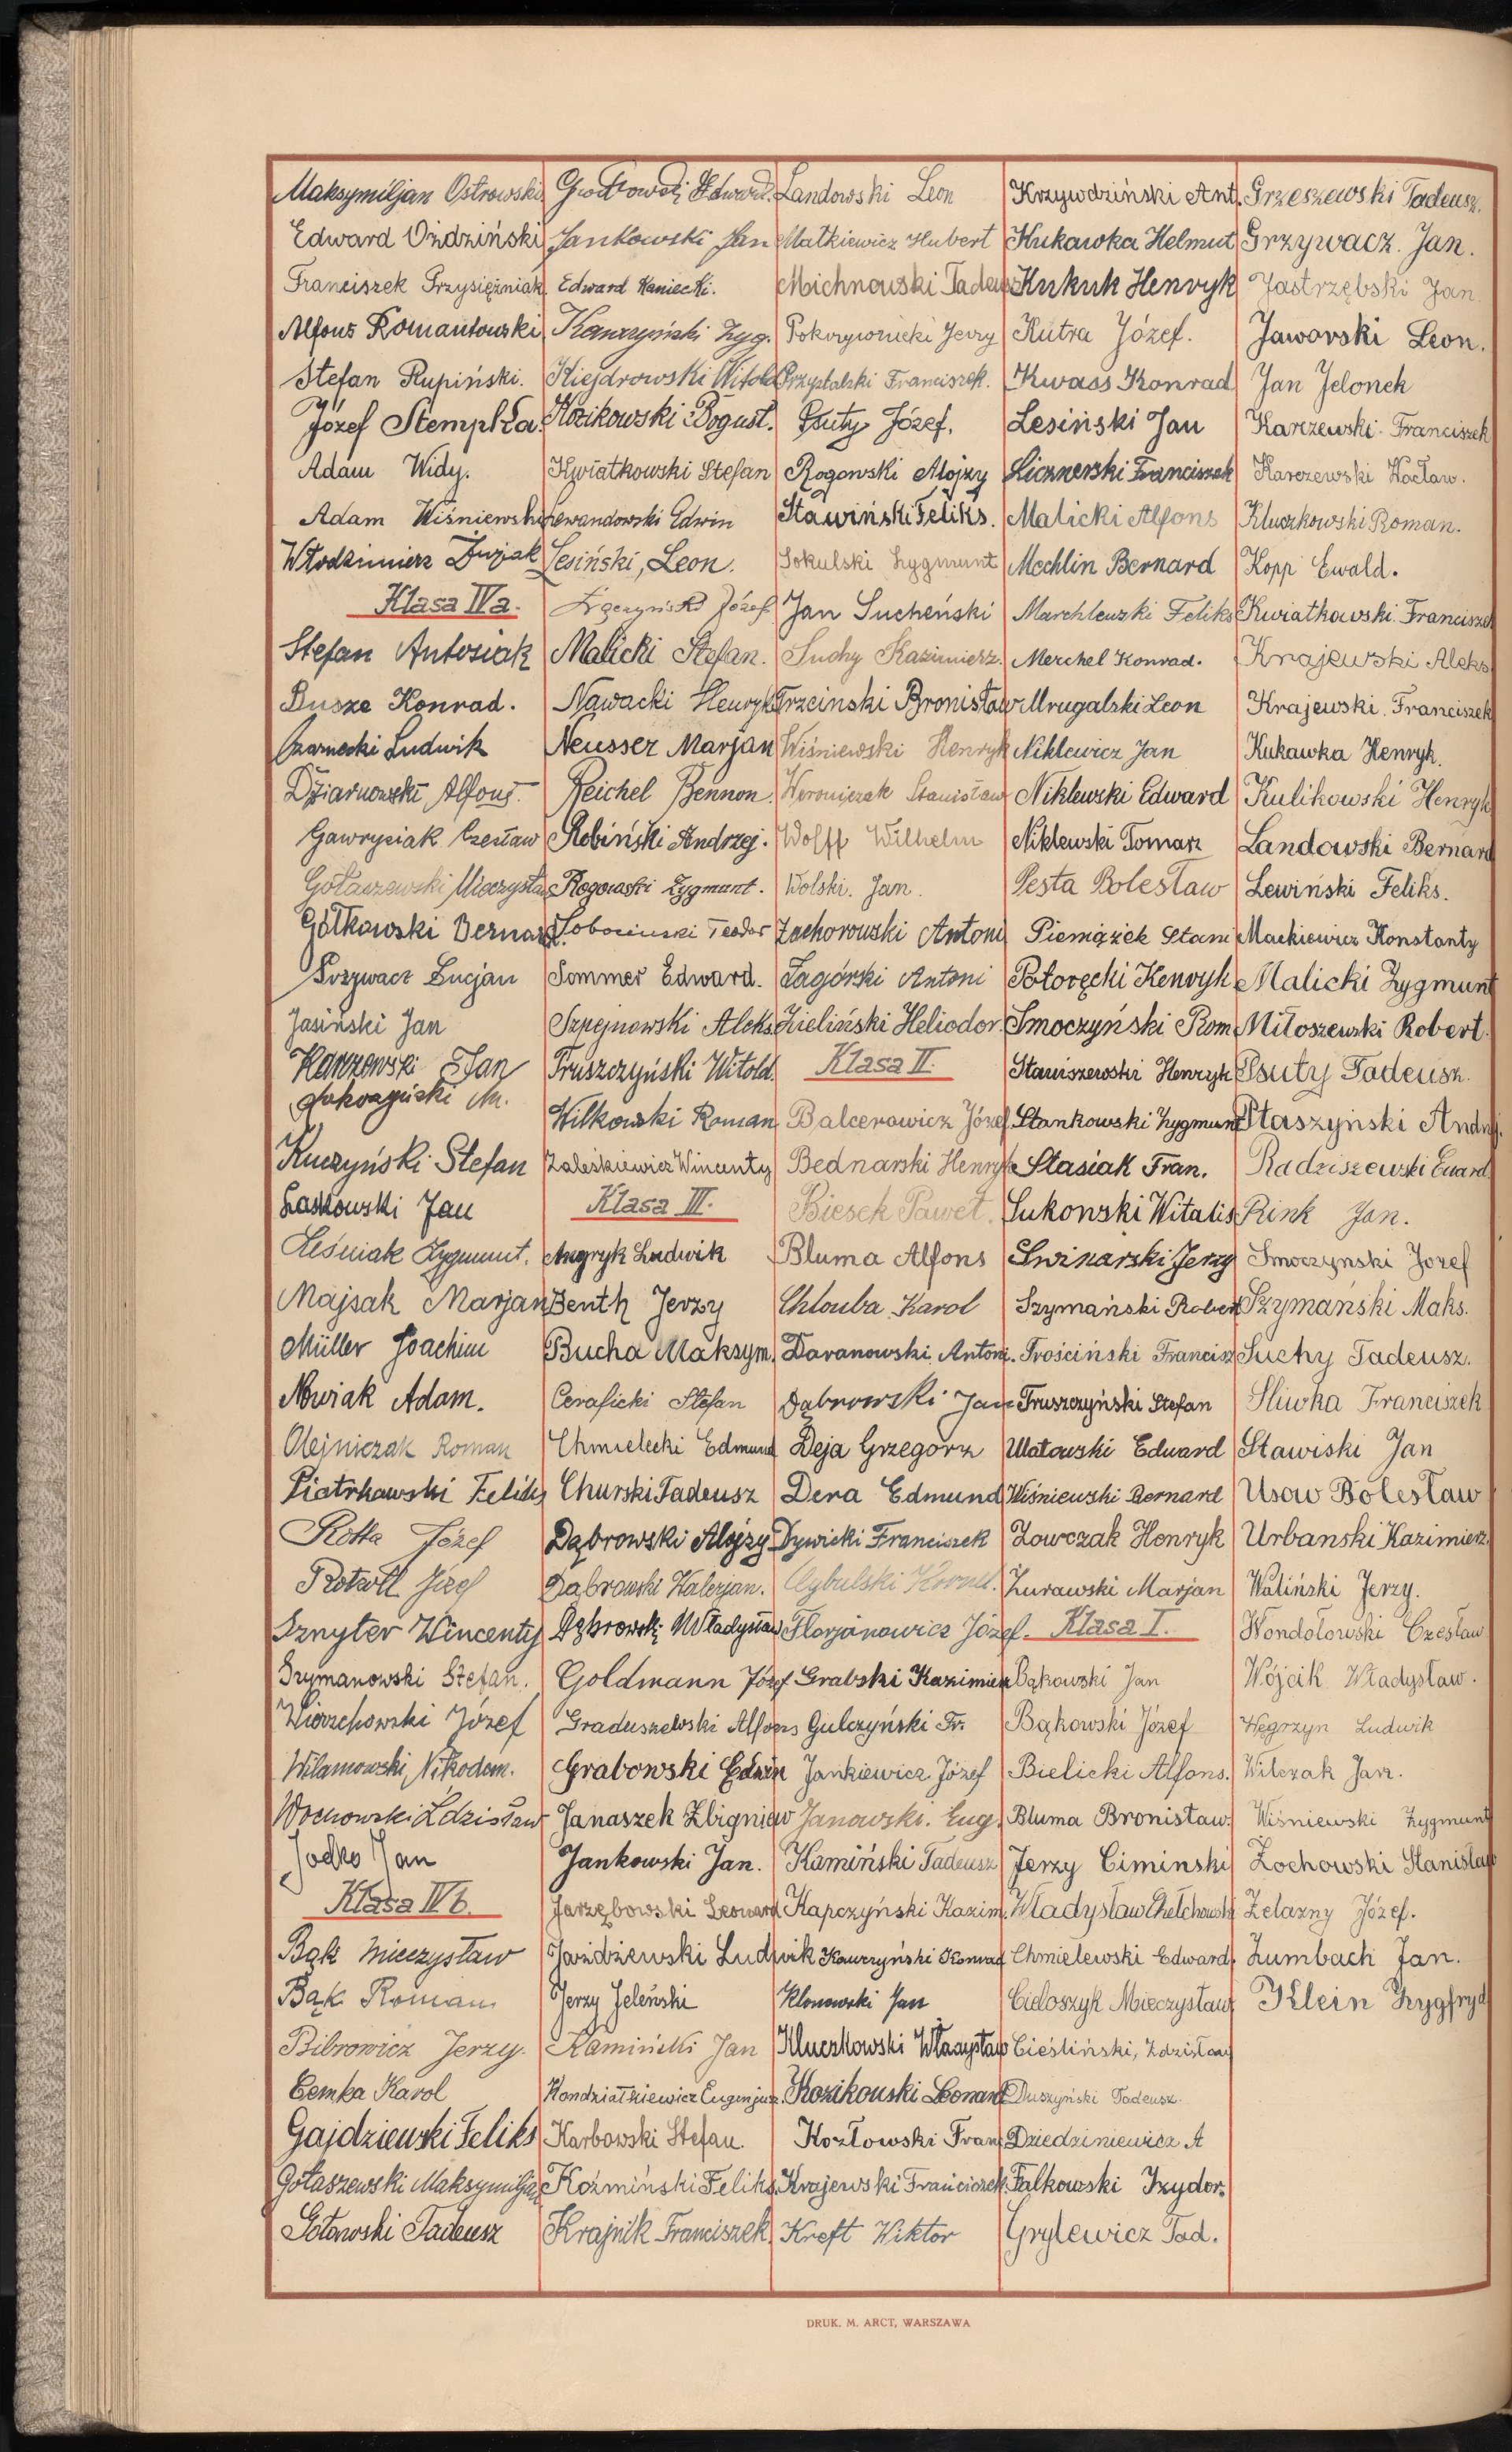 Maksymiljan Ostrowski
Edward Oździński
Franciszek Przysiężniak
Alfons Romantowski
Stefan Rupiński.
Józef Stempka.
Adam Widy.
Adam Wiśniewski
Włodzimierz
Klasa IVa.
Stefan Antosiak
Busze Konrad.
Czarnecki Ludwik
Dziarnowski Alfons.
Gawrysiak Czesław
Gołaszewski Mieczysław
Gółkowski Bernard.
Grzywacz Lucjan
Jasiński Jan
Karczewski Jan
Kuczyński Stefan
Laskowski Jan
Leśniak Zygmunt.
Majsak Marjan
Müller Joachim
Nowiak Adam.
Olejniczak Roman
Piotrkowski Feliks
Rotta Józef
Rotzoll Józef
Sznyter Wincenty
Szymanowski Stefan.
Wierzchowski Józef
Wilamowski, Nikodem.
Wochowski Zdzisław
Jodko Jan
Klasa IVb.
Bąk Mieczysław
Bąk Roman
Bibrowicz Jerzy.
Cemka Karol
Gajdziewski Feliks
Gołaszewski Maksymiljan
Gotowski Tadeusz
Grodkowski Edward.
Jankowski Jan
Edward Kaniecki.
Kawczyński Zyg.
Kiejdrowski Witold
Kozikowski Bogusł.
Kwiatkowski Stefan
Lewandowski Edwin
Lesiński, Leon.
Łączyński Józef
Malicki Stefan.
Nawacki Henryk
Neusser Marjan
Reichel Bennon.
Robiński Andrzej.
Rogowski Zygmunt.
Sobociński Teodor
Sommer Edward.
Szpejnowski Aleks.
Truszczyński Witold.
Wilkowski Roman
Zaleśkiewicz Wincenty
Klasa III.
Angryk Ludwik
Benth Jerzy
Bucha Maksym.
Ceraficki Stefan
Chmielecki Edmund
Churski Tadeusz
Dąbrowski Alojzy
Dąbrowski Walerjan.
Dąbrowski Władysław
Goldmann Józef
Graduszewski Alfons
Grabowski Edwin
Janaszek Zbigniew
Jankowski Jan.
Jarzębowski Leonard
Jażdżewski Ludwik
Jerzy Jeleński
Kamiński Jan
Kondziałkiewicz Eugenjusz.
Karbowski Stefan.
Koźmiński Feliks.
Krajnik Franciszek.
Landowski Leon
Matkiewicz Hubert
Michnowski Tadeusz
Pokrywnicki Jerzy
Przystalski Franciszek.
Psuty Józef.
Rogowski Alojzy
Sławiński Feliks.
Sokulski Zygmunt
Jan Sucheński
Suchy Kazimierz.
Trzcinski Bronisław
Wiśniewski Henryk
Weroniczak Stanisław
Wolff Wilhelm
Wolski. Jan.
Zachorowski Antoni
Zagórski Antoni
Zieliński Heliodor
Klasa II.
Balcerowicz Józef
Bednarski Henryk
Biesek Paweł.
Bluma Alfons
Chłouba Karol
Daranowski Antoni.
Dąbrowski Jan
Deja Grzegorz
Dera Edmund
Dywicki Franciszek
Cybulski Kornel.
Florjanowicz Józef.
Grabski Kazimierz
Gulczyński Fr.
Jankiewicz Józef
Janowski. Eug.
Kamiński Tadeusz
Kapczyński Kazim.
Kawczyński Konrad
Klonowski Jan
Kluczkowski Władysław
Kozikowski Leonard
Kozłowski Fran.
Krajewski Franciszek
Kreft Wiktor
Krzywdziński Ant.
Kukawka Helmut
Kukuk Henryk
Kutra Józef.
Kwass Konrad
Lesiński Jan
Licznerski Franciszek
Malicki Alfons
Mechlin Bernard
Marchlewski Feliks
Merchel Konrad.
Mrugalski Leon
Niklewicz Jan
Niklewski Edward
Niklewski Tomasz
Pesta Bolesław
Pieniążek Stani
Połoręcki Henryk
Smoczyński Rom
Staniszewski Henryk
Stankowski Zygmunt
Stasiak Fran.
Sukowski Witalis
Swinarski Jerzy
Szymański Robert
Trościński Francisz
Truszczyński Stefan
Ulatowski Edward
Wiśniewski Bernard
Zowczak Henryk
Żurawski Marjan
Klasa I.
Bąkowski Jan
Bąkowski Józef
Bielicki Alfons.
Bluma Bronisław.
Jerzy Ciminski
Władysław Chełchowski
Chmielewski Edward.
Cidoszyk Mieczysław
Cieśliński, Zdzisław
Duszyński Tadeusz.
Dziedziniewicz A
Falkowski Izydor.
Grylewicz Tad.
Grzeszewski Tadeusz.
Grzywacz. Jan.
Jastrzębski Jan
Jaworski Leon.
Jan Jelonek
Karczewski. Franciszek
Karczewski Wacław.
Kluczkowski Roman.
Kopp Ewald.
Kwiatkowski. Franciszek
Krajewski Aleks.
Krajewski. Franciszek
Kukawka Henryk.
Kulikowski Henryk
Landowski Bernard
Lewiński Feliks.
Mackiewicz Konstanty
Malicki Zygmunt
Miłoszewski Robert.
Psuty Tadeusz.
Ptaszyński Andrzej.
Radziszewski Edward.
Rink Jan.
Smoczynski Jozef
Szymański Maks.
Suchy Tadeusz.
Sliwka Franciszek
Stawiski Jan
Usow Bolesław
Urbanski Kazimierz
Waliński Jerzy.
Wondołowski Czesław
Wójcik Władysław.
Węgrzyn Ludwik
Witczak Jan.
Wiśniewski Zygmunt
Żochowski Stanisław
Żelazny Józef.
Zumbach Jan.
Klein Zygfryd
DRUK. M. ARCT, WARSZAWA